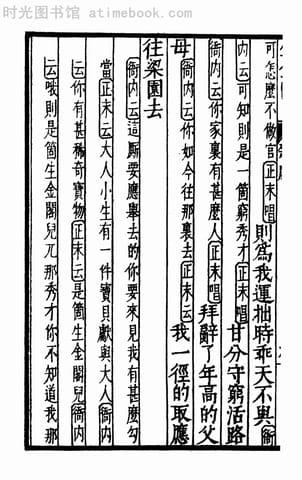 时光图书馆 · atimebook.com
可怎麽不做官正末唱則爲我運拙時乖天不與衙
内云可知則是一箇窮秀才正末唱甘分守窮活路
衙内云你家裏有甚麽人正末唱拜辭了年高的父
母衙内云你如今往那裏去正末云我一徑的取應
往梁園去
衙内云這厮要應舉去的你要來見我有甚麽勾
當正末云大人小生有一件寶貝獻與大人衙内
云你有甚稀奇寶物正末云是箇生金閣兒衙内
云哦則是箇生金閣兒兀那秀才你不知道我那